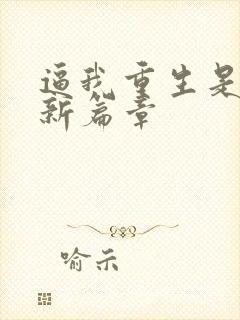 逼我重生是
新篇章
喻示